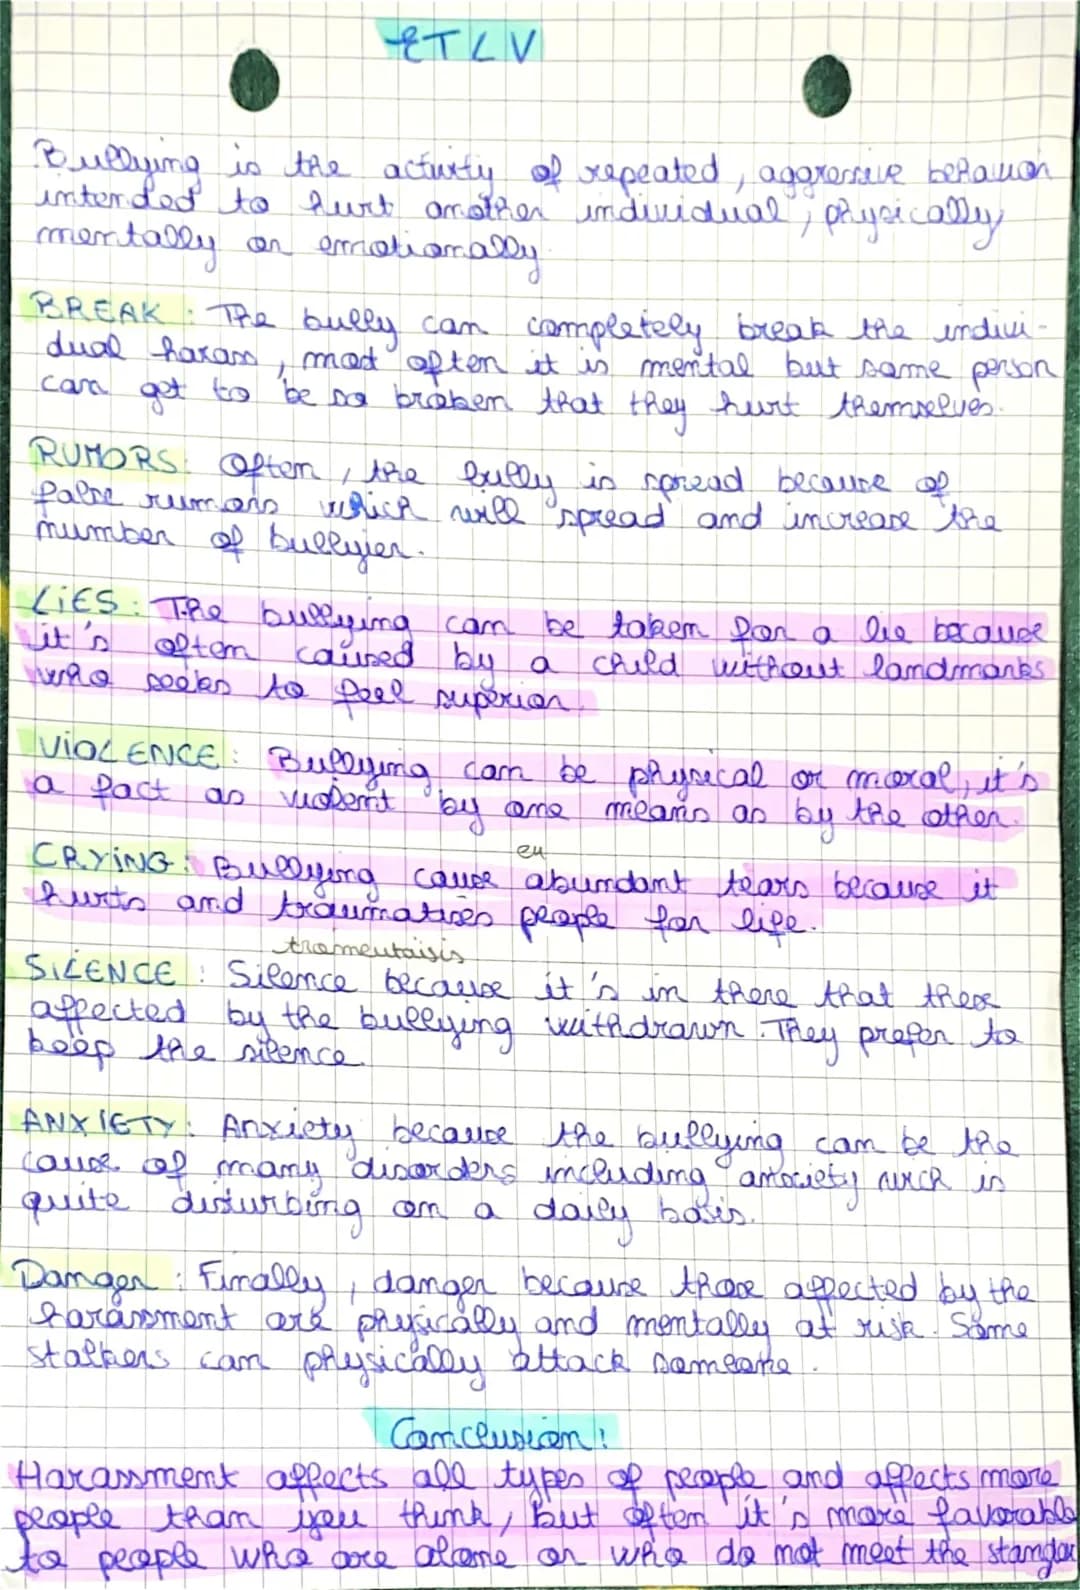 ETLV
Bullying is the activity of repeated, aggressive behavior
intended to hurt another individual, physically
mentally or emotionally.
BREAK : The bully can completely break the indivi-
dual harass, most often it is mental but some person
can get to be so broken that they hurt themselves.
RUMORS: Often, the bully is spread because of
false rumors which will spread and increase the
number of bullyier.
LiES : The bullying can be taken for a lie because
it's often caused by a child without landmarks
who seeks to feel superior.
ViOLENCE : Bullying can be physical or moral, it's
a fact as violent by one means as by the other.
eu
CRYiNG : Bullying cause abundant tears because it
hurts and traumatises people for life.
tromeutaisis
SiLENCE : Silence because it's in there that these
affected by the bullying withdrawn. They prefer to
keep the silence.
ANXIETY : Anxiety because the bullying can be the
cause of many disorders including anxiety wich is
quite disturbing on a daily basis.
Danger : Finally, danger because those affected by the
harassment are physically and mentally at risk. Some
stalkers can physically attack someone.
Conclusion :
Harassment affects all types of people and affects more
people than you think, but often it's more favorable
to people who are alone or who do not meet the standar